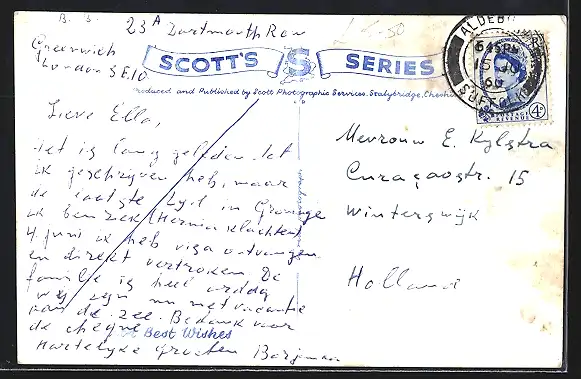 23A Dartmouth Row
Greenwich
London SE10
SCOTT'S S SERIES
Produced and Published by Scott Photographic Services, Stalybridge, Cheshire
ALDEB
645PM
15
60
SUFFOLK
POSTAGE
REVENUE
4D
Lieve Ella,
Het is lang geleden dat
ik geschreven heb, maar
de laatste tyd in
ik ben ziek (Hernia klachten)
4 Juni ik heb visa ontvangen
en direkt vertrokken De
familie is heel aardig
wij zijn nu met vacantie
aan de zee. Bedankt voor
de cheque
Best Wishes
Hartelyke groeten
Mevrouw E. Kylstra
Curaçaostr. 15
Winterswijk
Holland